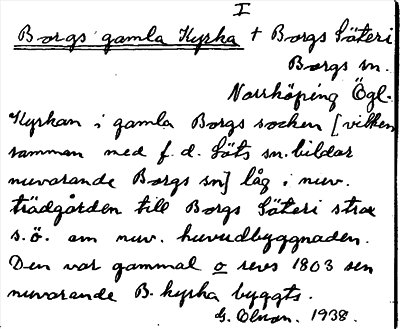 I
Borgs gamla Kyrka + Borgs Säteri
Borgs sn.
Norrköping Ögl.
Kyrkan i gamla Borgs socken [vilken
samman med f.d. Löts sn. bildar
nuvarande Borgs sn] låg i nuv.
trädgården till Borgs Säteri strax
s.ö. om nuv. huvudbyggnaden.
Den var gammal o revs 1803 sen
nuvarande B. kyrka byggts.
G. Olsson. 1938.